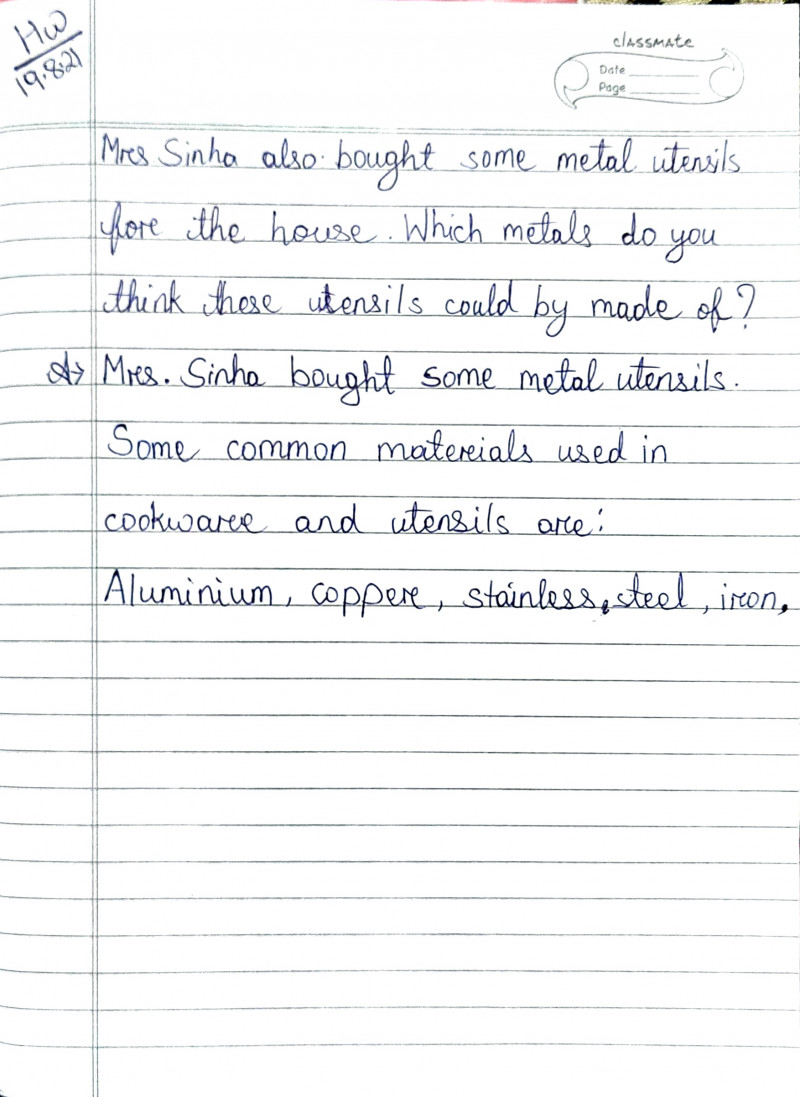 HW
19.8.21
classmate
Date
Page
Mrs Sinha also bought some metal utensils
for the house. Which metals do you
think these utensils could by made of?
A→ Mrs. Sinha bought some metal utensils.
Some common materials used in
cookware and utensils are:
Aluminium, copper, stainless, steel, iron,